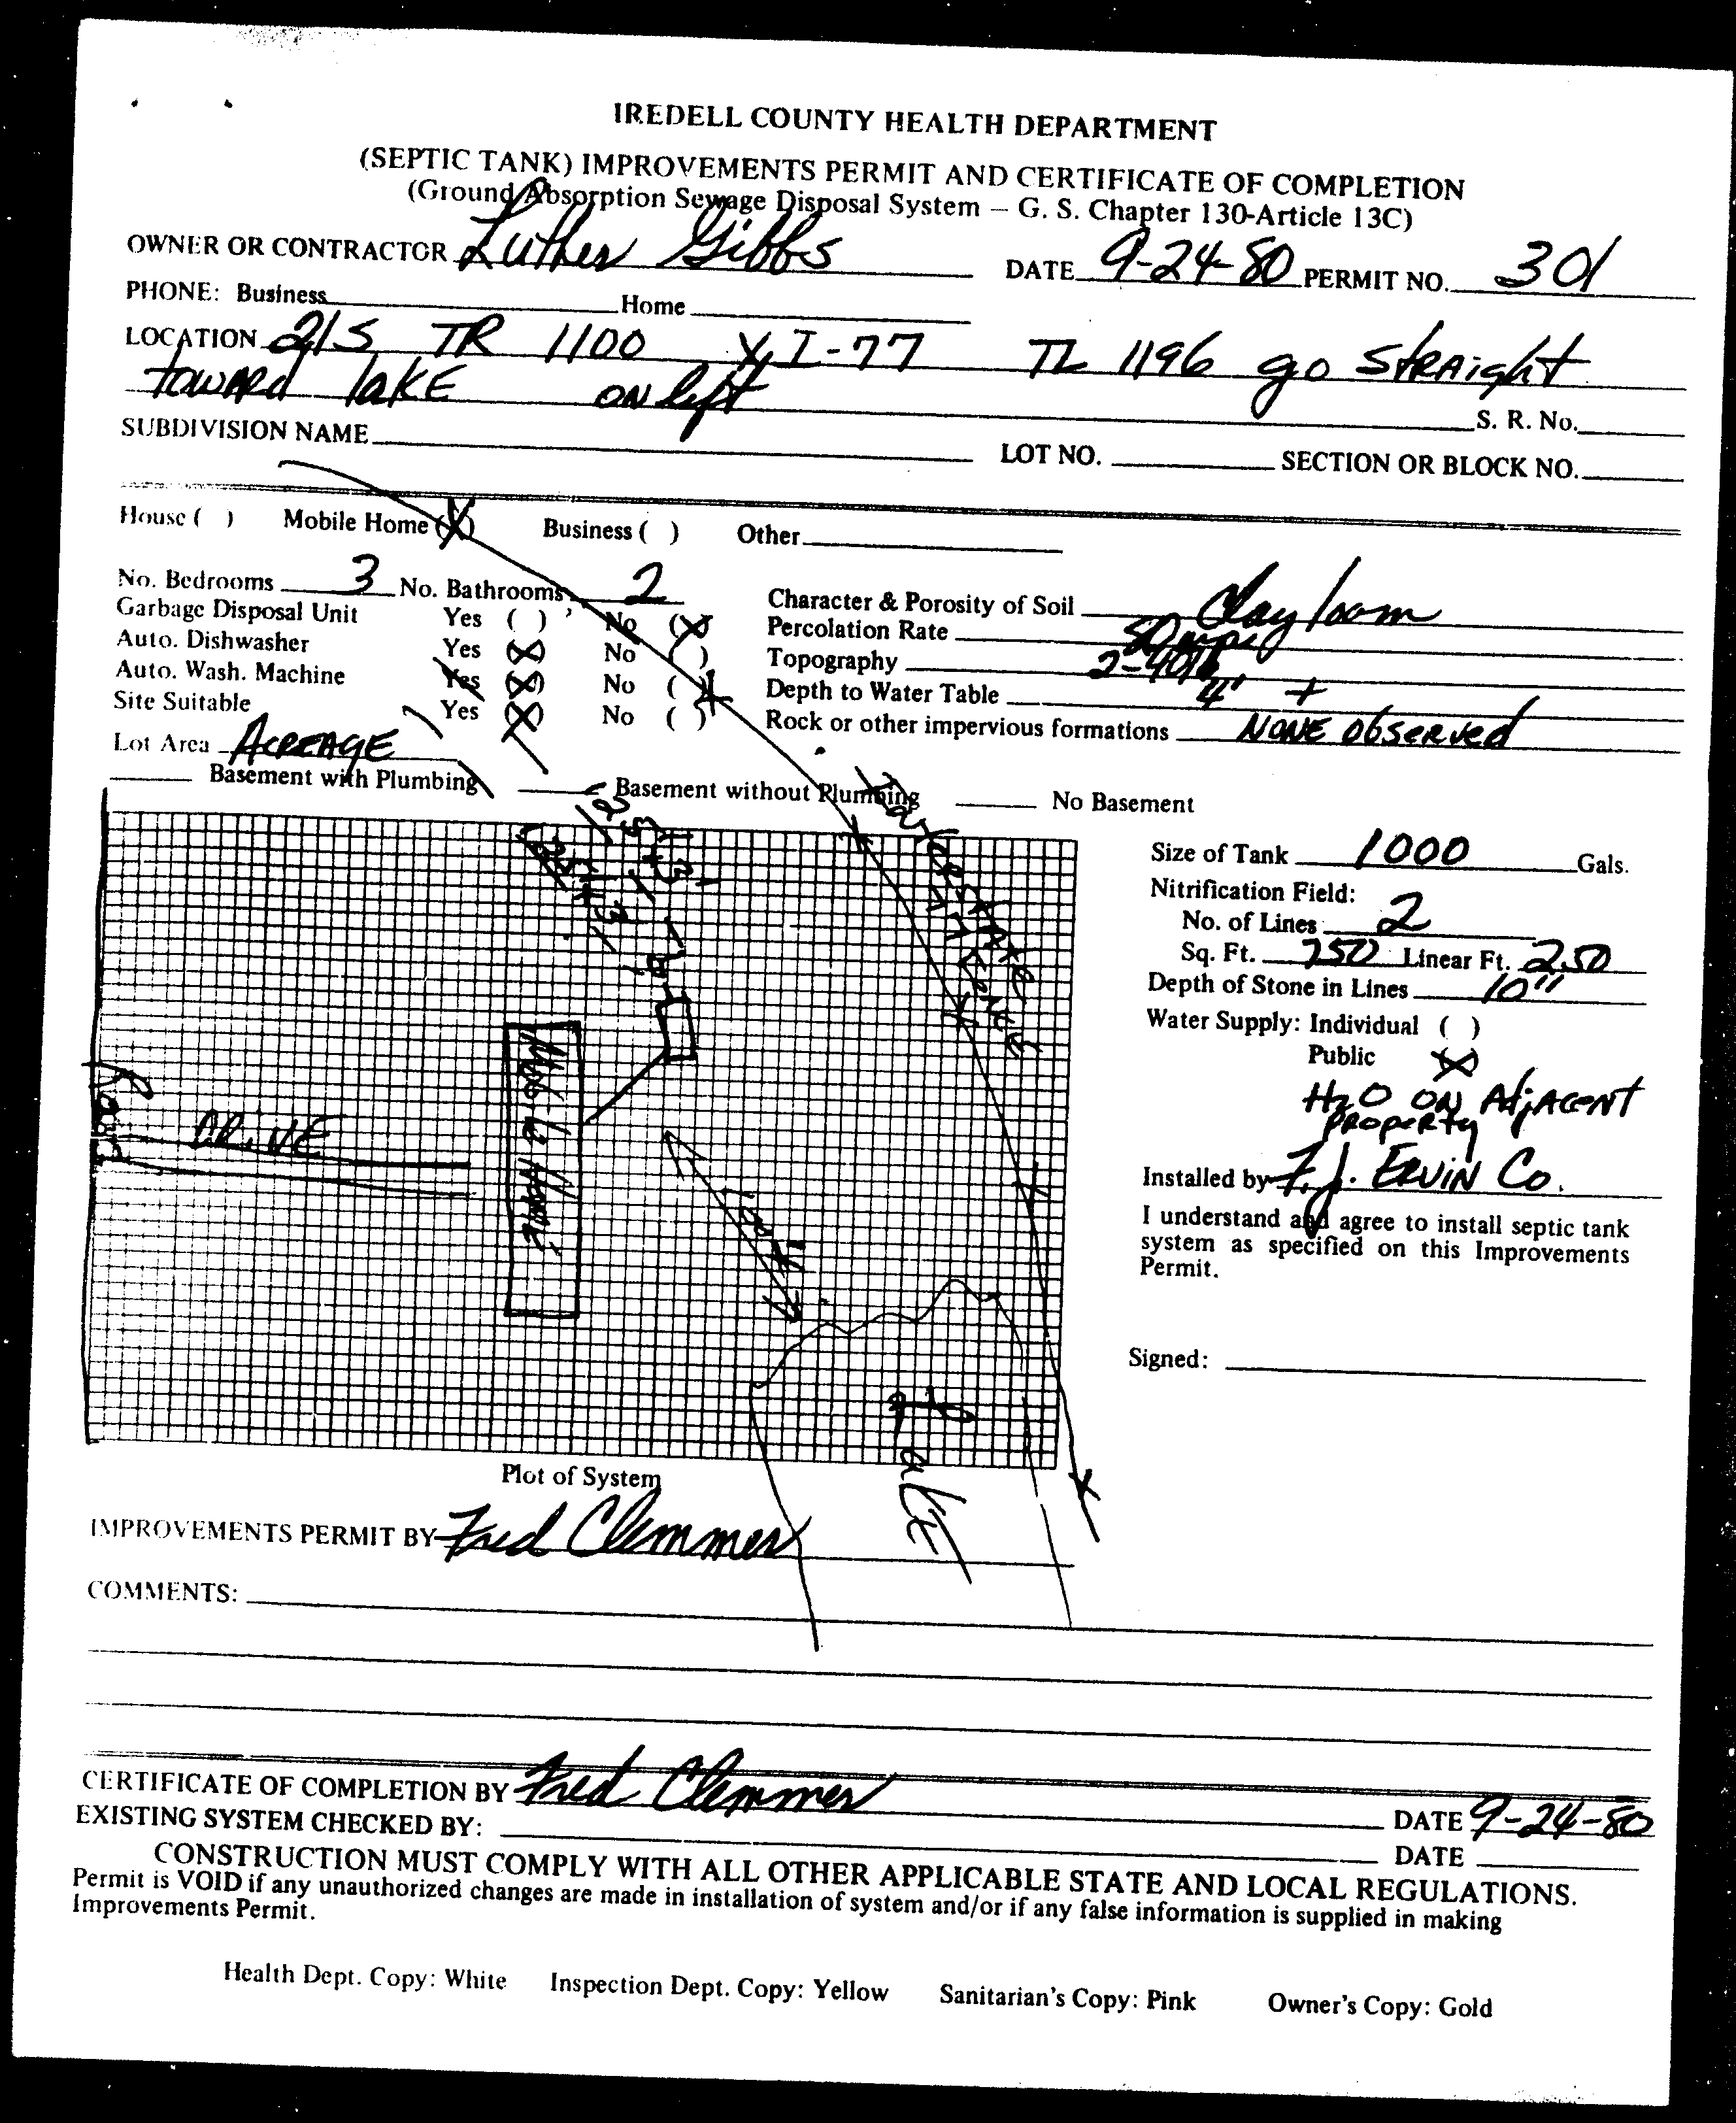 IREDELL COUNTY HEALTH DEPARTMENT
(SEPTIC TANK) IMPROVEMENTS PERMIT AND CERTIFICATE OF COMPLETION
(Ground Absorption Sewage Disposal System — G. S. Chapter 130-Article 13C)
OWNER OR CONTRACTOR Luther Gibbs DATE 9-24-80 PERMIT NO. 301
PHONE: Business Home
LOCATION 21S TR 1100 X I-77 TL 1196 go STRAight
toward lAKE ON left S. R. No.
SUBDIVISION NAME LOT NO. SECTION OR BLOCK NO.
House ( ) Mobile Home (X) Business ( ) Other
No. Bedrooms 3 No. Bathrooms 2 Character & Porosity of Soil Clay loam
Garbage Disposal Unit Yes ( ) No (X) Percolation Rate 50 mpi
Auto. Dishwasher Yes (X) No ( ) Topography 2-40%
Auto. Wash. Machine Yes (X) No ( ) Depth to Water Table 4' +
Site Suitable Yes (X) No ( ) Rock or other impervious formations NONE Observed
Lot Area ACREAGE
Basement with Plumbing Basement without Plumbing No Basement
Size of Tank 1000 Gals.
Nitrification Field:
No. of Lines 2
Sq. Ft. 750 Linear Ft. 250
Depth of Stone in Lines 10"
Water Supply: Individual ( )
Public (X)
H2O ON AdjACENT
PROPERTY
Installed by F. J. ERVIN Co.
I understand and agree to install septic tank
system as specified on this Improvements
Permit.
Signed:
Road
DRIVE
Mobile Home
Lake
Plot of System
IMPROVEMENTS PERMIT BY Fred Clemmer
COMMENTS:
CERTIFICATE OF COMPLETION BY Fred Clemmer DATE 9-24-80
EXISTING SYSTEM CHECKED BY: DATE
CONSTRUCTION MUST COMPLY WITH ALL OTHER APPLICABLE STATE AND LOCAL REGULATIONS.
Permit is VOID if any unauthorized changes are made in installation of system and/or if any false information is supplied in making
Improvements Permit.
Health Dept. Copy: White Inspection Dept. Copy: Yellow Sanitarian's Copy: Pink Owner's Copy: Gold